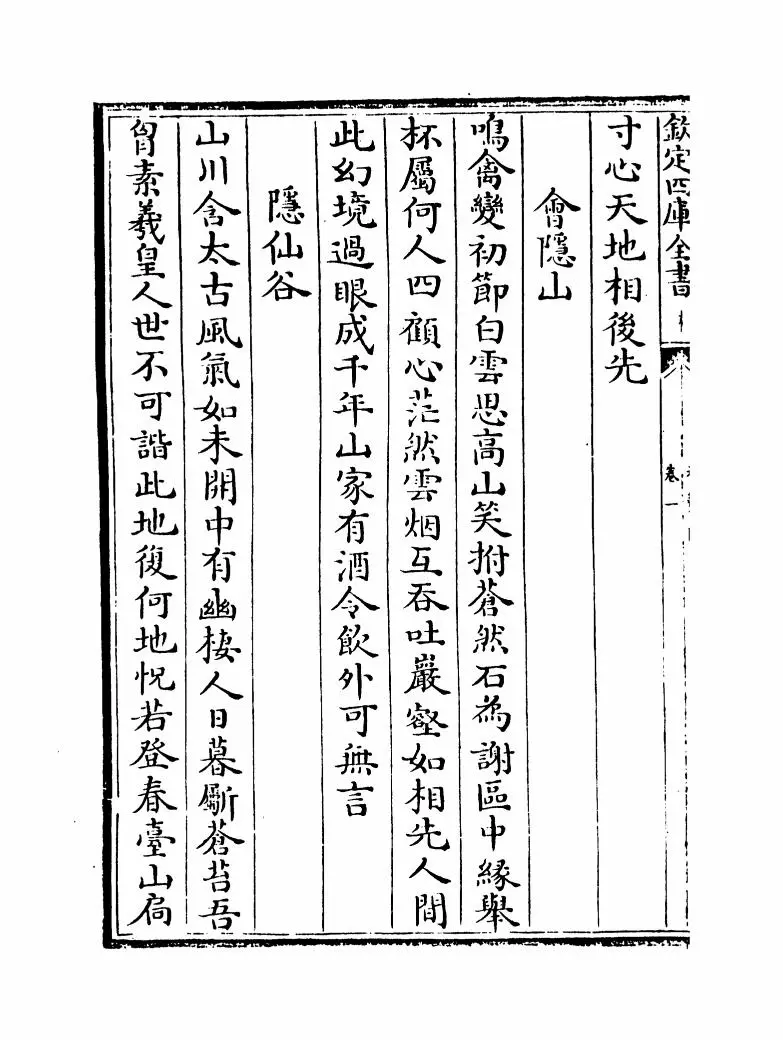 欽定四庫全書
卷一
寸心天地相後先
會隱山
鳴禽變初節白雲思高山笑拊蒼然石為謝區中緣舉
杯屬何人四顧心茫然雲烟互吞吐巖壑如相先人間
此幻境過眼成千年山家有酒令飲外可無言
隱仙谷
山川含太古風氣如未開中有幽棲人日暮斸蒼苔吾
胷素羲皇人世不可諧此地復何地怳若登春臺山扃